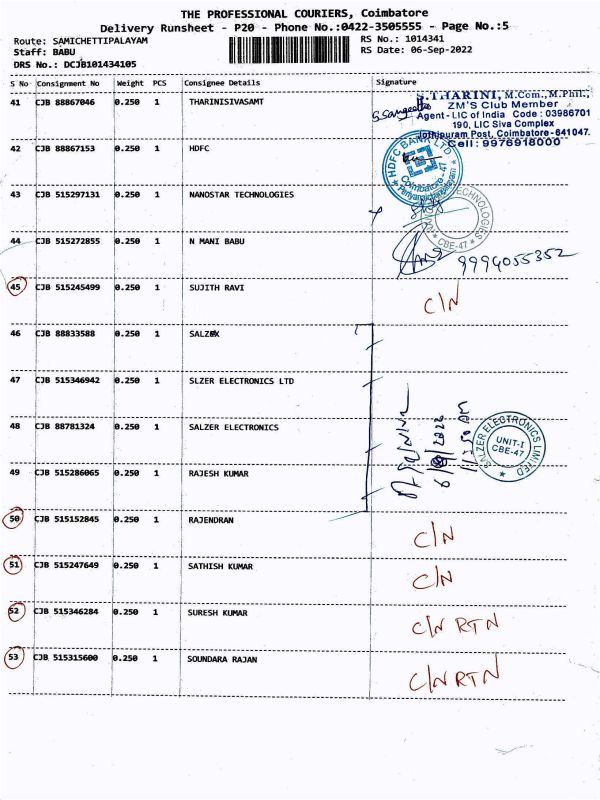 THE PROFESSIONAL COURIERS, Coimbatore
Delivery Runsheet - P20 - Phone No.:0422-3505555 - Page No.:5
Route: SAMICHETTIPALAYAM
Staff: BABU
DRS No.: DCJB101434105
RS No.: 1014341
RS Date: 06-Sep-2022
S No Consignment No Weight PCS Consignee Details Signature
41 CJB 88867046 0.250 1 THARINISIVASAMT
S.THARINI, M.Com.,M.Phil.,
ZM'S Club Member
Agent - LIC of India Code : 03986701
190, LIC Siva Complex
Jothipuram Post, Coimbatore-641047.
Cell : 9976918000
42 CJB 88867153 0.250 1 HDFC
HDFC BANK LTD
Coimbatore - 47
43 CJB 515297131 0.250 1 NANOSTAR TECHNOLOGIES
TECHNOLOGIES
CBE-47
44 CJB 515272855 0.250 1 N MANI BABU
9994055352
45 CJB 515245499 0.250 1 SUJITH RAVI
C/N
46 CJB 88833588 0.250 1 SALZEX
47 CJB 515346942 0.250 1 SLZER ELECTRONICS LTD
48 CJB 88781324 0.250 1 SALZER ELECTRONICS
SALZER ELECTRONICS LIMITED
UNIT-I
CBE-47
49 CJB 515286065 0.250 1 RAJESH KUMAR
50 CJB 515152845 0.250 1 RAJENDRAN
C/N
51 CJB 515247649 0.250 1 SATHISH KUMAR
C/N
52 CJB 515346284 0.250 1 SURESH KUMAR
C/N RTN
53 CJB 515315600 0.250 1 SOUNDARA RAJAN
C/N RTN